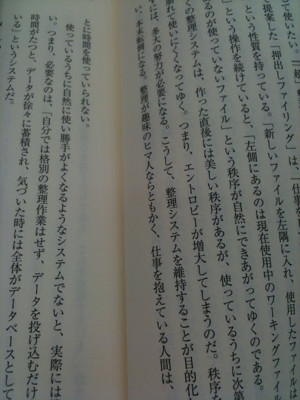 て使いたい。
提案した「押出しファイリング」は、「仕事
という性質を持っている。「新しいファイルを左端に入れ、使用した
る」という操作を続けていると、「左側にあるのは現在使用中のワーキングファイル
るのが使っていないファイル」という秩序が自然にできあがってゆくのである。
の整理システムは、作った直後には美しい秩序があるが、使っているうちに次第
使いにくくなってゆく。つまり、エントロピーが増大してしまうのだ。秩序を
には、多大の努力が必要になる。こうして、整理システムを維持することが目的化
い、本末転倒になる。整理が趣味のヒマ人ならともかく、仕事を抱えている人間は、
とに時間を使っていられない。
使っているうちに自然に使い勝手がよくなるようなシステムでないと、実際には
い。つまり、必要なのは、「自分では格別の整理作業はせず、データを投げ込むだけ
時間がたつと、データが徐々に蓄積され、気づいた時には全体がデータベースとして
いる」というシステムだ。